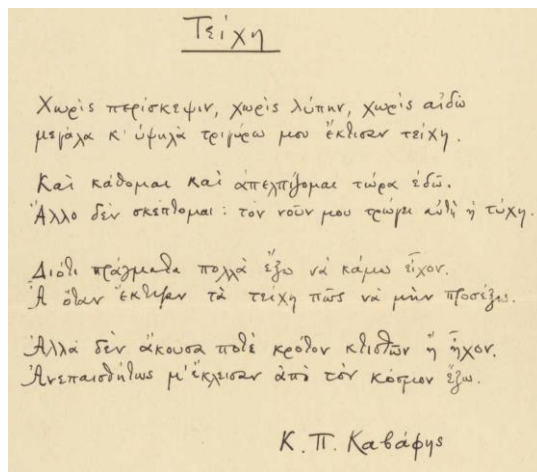 Τείχη
Χωρίς περίσκεψιν, χωρίς λύπην, χωρίς αἰδώ
μεγάλα κ' ὑψηλὰ τριγύρω μου ἔκτισαν τείχη.
Καὶ κάθομαι καὶ ἀπελπίζομαι τώρα ἐδῶ.
Ἄλλο δὲν σκέπτομαι: τὸν νοῦν μου τρώγει αὐτὴ ἡ τύχη·
Διότι πράγματα πολλὰ ἔξω νὰ κάμω εἶχον.
Ἆ ὅταν ἔκτιζαν τὰ τείχη πῶς νὰ μὴν προσέξω.
Ἀλλὰ δὲν ἄκουσα ποτὲ κρότον κτιστῶν ἢ ἦχον.
Ἀνεπαισθήτως μ' ἔκλεισαν ἀπὸ τὸν κόσμον ἔξω.
Κ. Π. Καβάφης